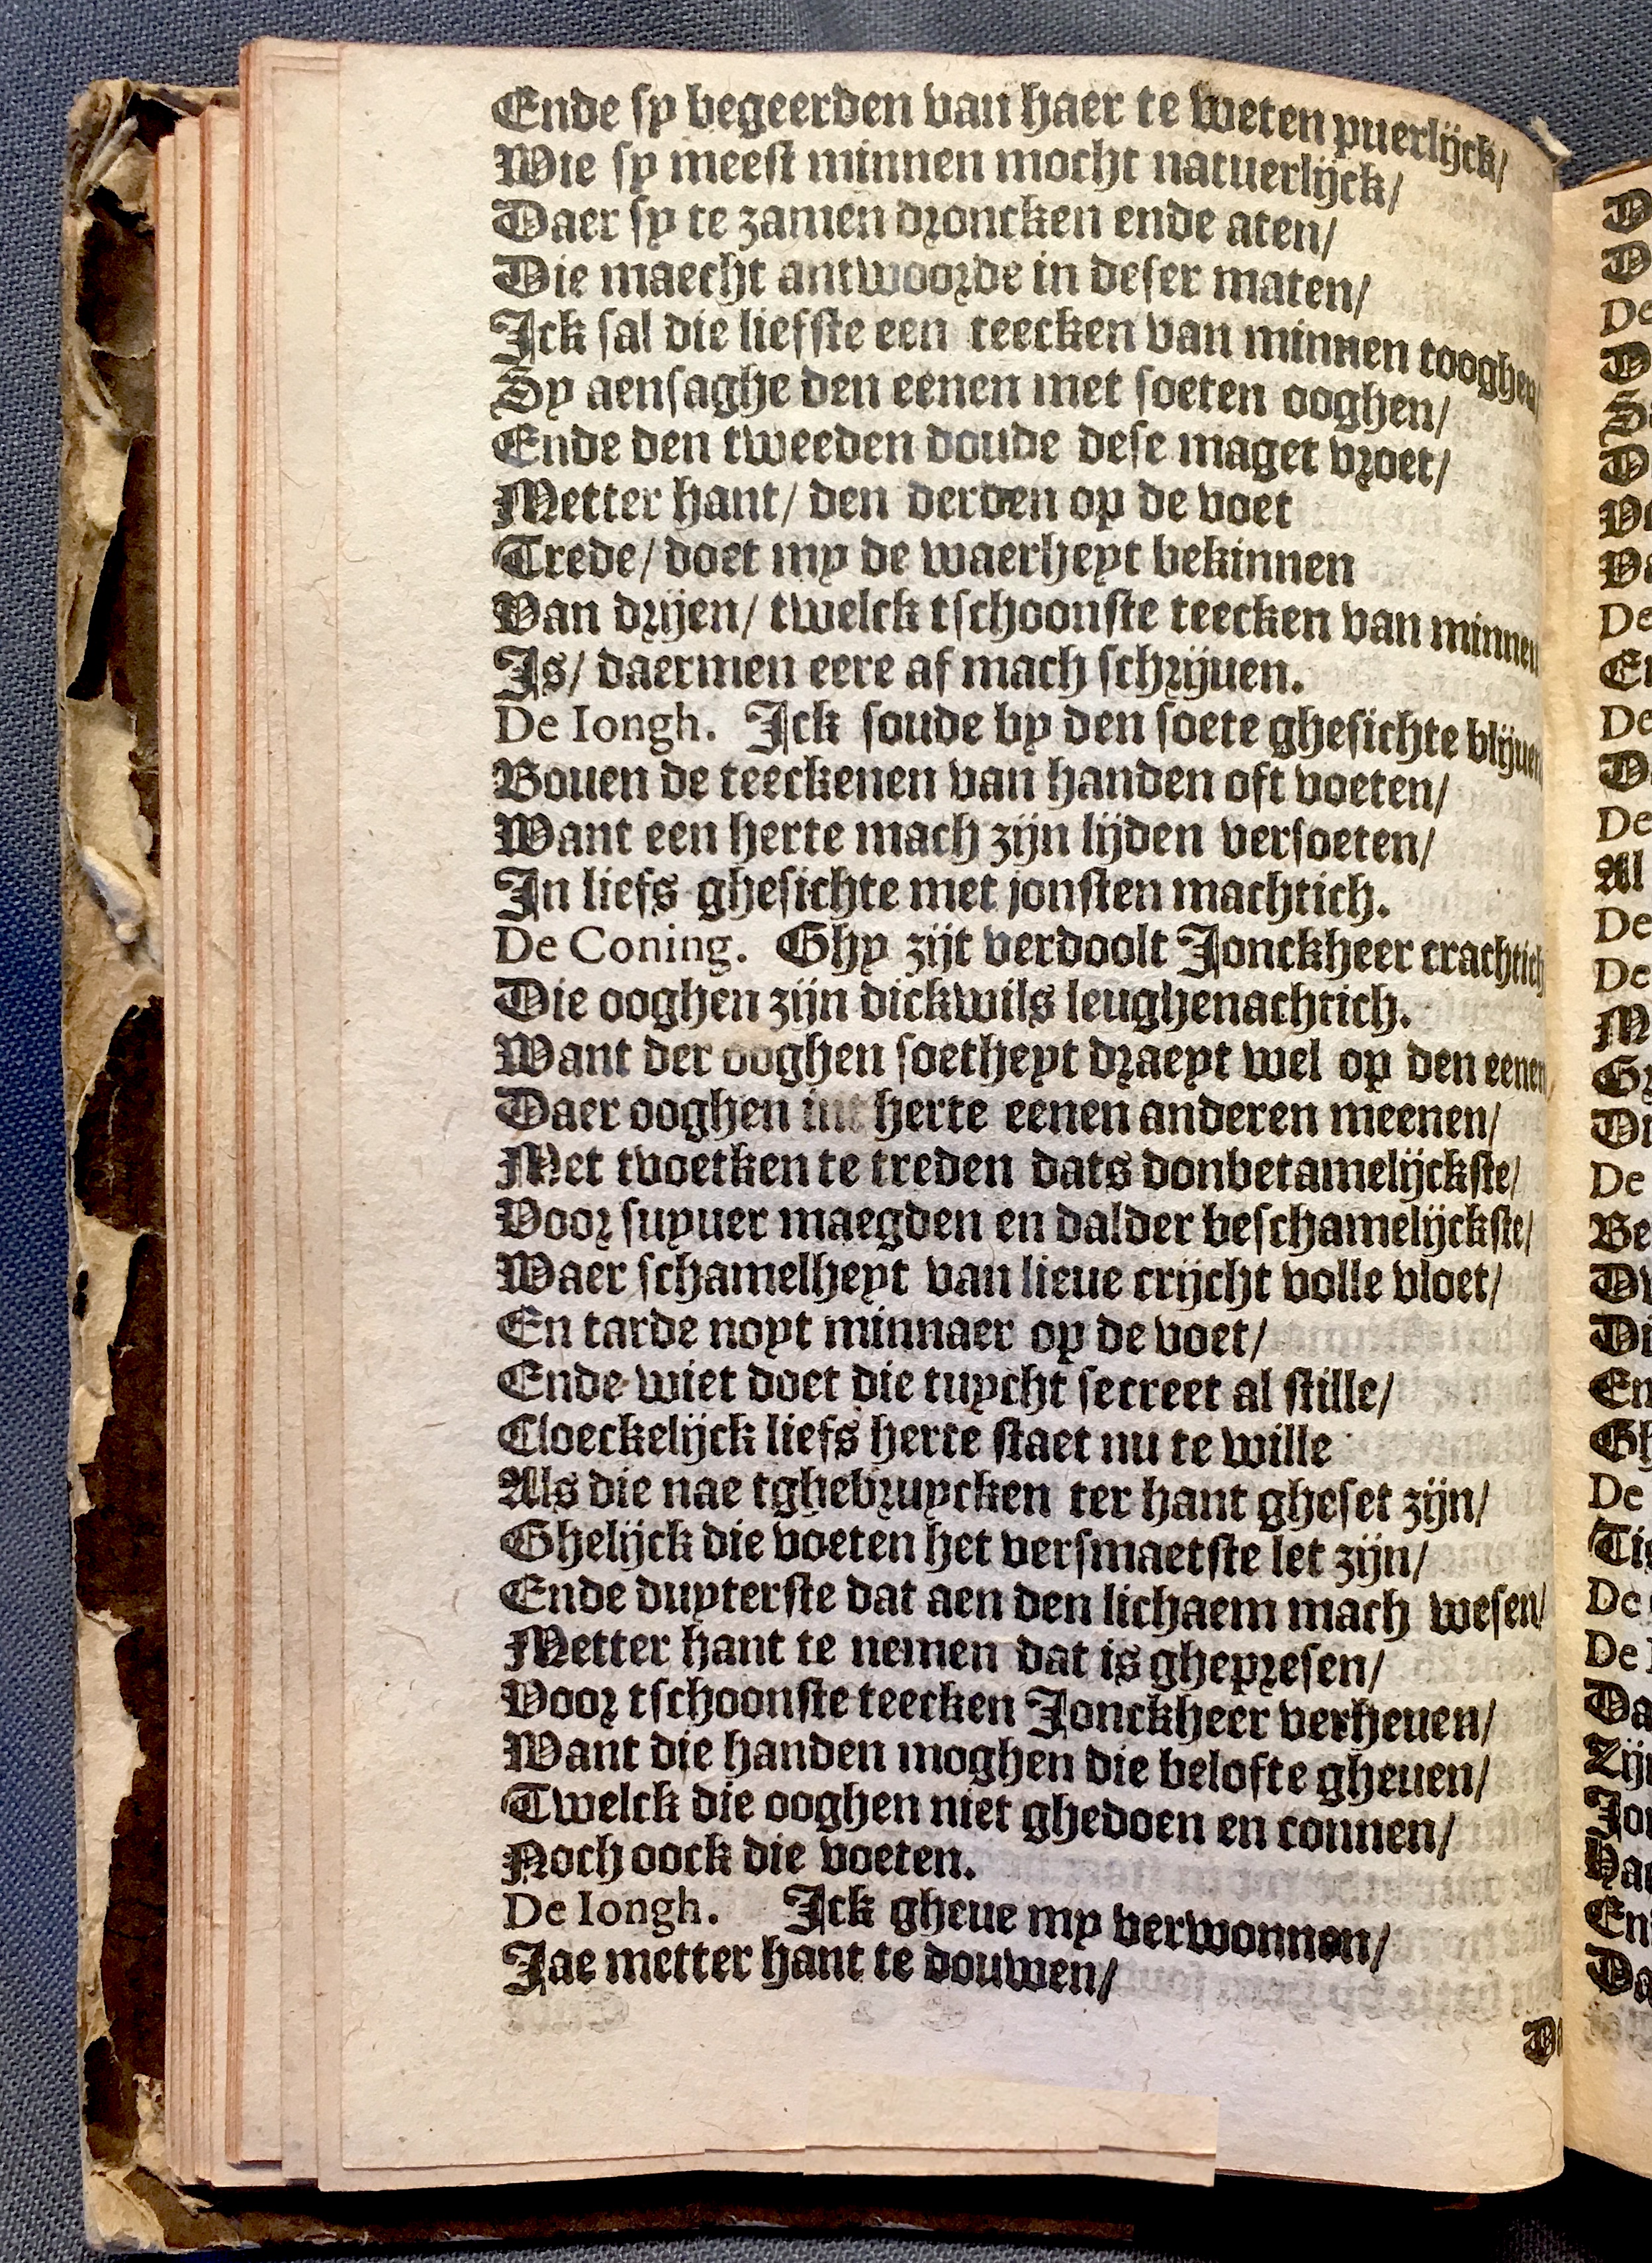 Ende sy begeerden van haer te weten puerlijck/
Wie sy meest minnen mocht natuerlijck/
Daer sy te zamen droncken ende aten/
Die maecht antwoorde in deser maten/
Ick sal die liefste een teecken van minnen tooghen/
Sy aensaghe den eenen met soeten ooghen/
Ende den tweeden doude dese maget vroet/
Metter hant/ den derden op de voet
Trede/ doet my de waerheyt bekinnen
Van drijen/ twelck tschoonste teecken van minnen
Is/ daermen eere af mach schrijuen.
De Iongh. Ick soude by den soete ghesichte blijuen
Bouen de teeckenen van handen oft voeten/
Want een herte mach zijn lijden versoeten/
In liefs ghesichte met jonsten machtich.
De Coning. Ghy zijt verdoolt Jonckheer crachtich
Die ooghen zijn dickwils leughenachtich.
Want der ooghen soetheyt draeyt wel op den eenen/
Daer ooghen int herte eenen anderen meenen/
Met tvoetken te treden dats donbetamelijckste/
Voor suyuer maegden en dalder beschamelijckste/
Waer schamelheyt van lieue crijcht volle vloet/
En tarde noyt minnaer op de voet/
Ende wiet doet die tuycht secreet al stille/
Cloeckelijck liefs herte staet nu te wille
Als die nae tghebruycken ter hant gheset zijn/
Ghelijck die voeten het versmaetste let zijn/
Ende duyterste dat aen den lichaem mach wesen/
Metter hant te nemen dat is ghepresen/
Voor tschoonste teecken Jonckheer verheuen/
Want die handen moghen die belofte gheuen/
Twelck die ooghen niet ghedoen en connen/
Noch oock die voeten.
De Iongh. Ick gheue my verwonnen/
Jae metter hant te douwen/